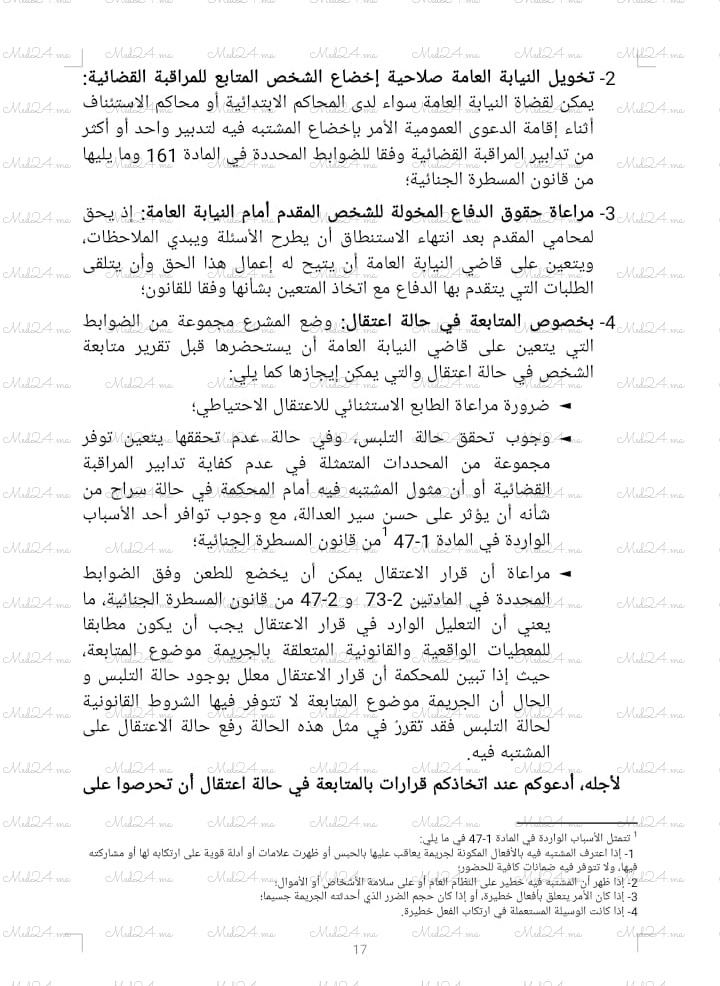 2- تخويل النيابة العامة صلاحية إخضاع الشخص المتابع للمراقبة القضائية:
يمكن لقضاة النيابة العامة سواء لدى المحاكم الابتدائية أو محاكم الاستئناف
أثناء إقامة الدعوى العمومية الأمر بإخضاع المشتبه فيه لتدبير واحد أو أكثر
من تدابير المراقبة القضائية وفقا للضوابط المحددة في المادة 161 وما يليها
من قانون المسطرة الجنائية؛
3- مراعاة حقوق الدفاع المخولة للشخص المقدم أمام النيابة العامة: إذ يحق
لمحامي المقدم بعد انتهاء الاستنطاق أن يطرح الأسئلة ويبدي الملاحظات،
ويتعين على قاضي النيابة العامة أن يتيح له إعمال هذا الحق وأن يتلقى
الطلبات التي يتقدم بها الدفاع مع اتخاذ المتعين بشأنها وفقا للقانون؛
4- بخصوص المتابعة في حالة اعتقال: وضع المشرع مجموعة من الضوابط
التي يتعين على قاضي النيابة العامة أن يستحضرها قبل تقرير متابعة
الشخص في حالة اعتقال والتي يمكن إيجازها كما يلي:
◄ ضرورة مراعاة الطابع الاستثنائي للاعتقال الاحتياطي؛
◄ وجوب تحقق حالة التلبس، وفي حالة عدم تحققها يتعين توفر
مجموعة من المحددات المتمثلة في عدم كفاية تدابير المراقبة
القضائية أو أن مثول المشتبه فيه أمام المحكمة في حالة سراح من
شأنه أن يؤثر على حسن سير العدالة، مع وجوب توافر أحد الأسباب
الواردة في المادة 1-47 1من قانون المسطرة الجنائية؛
◄ مراعاة أن قرار الاعتقال يمكن أن يخضع للطعن وفق الضوابط
المحددة في المادتين 2-73 و 2-47 من قانون المسطرة الجنائية، ما
يعني أن التعليل الوارد في قرار الاعتقال يجب أن يكون مطابقا
للمعطيات الواقعية والقانونية المتعلقة بالجريمة موضوع المتابعة،
حيث إذا تبين للمحكمة أن قرار الاعتقال معلل بوجود حالة التلبس و
الحال أن الجريمة موضوع المتابعة لا تتوفر فيها الشروط القانونية
لحالة التلبس فقد تقررُ في مثل هذه الحالة رفع حالة الاعتقال على
المشتبه فيه.
لأجله، أدعوكم عند اتخاذكم قرارات بالمتابعة في حالة اعتقال أن تحرصوا على
1 تتمثل الأسباب الواردة في المادة 1-47 في ما يلي:
1- إذا اعترف المشتبه فيه بالأفعال المكونة لجريمة يعاقب عليها بالحبس أو ظهرت علامات أو أدلة قوية على ارتكابه لها أو مشاركته
فيها، ولا تتوفر فيه ضمانات كافية للحضور؛
2- إذا ظهر أن المشتبه فيه خطير على النظام العام أو على سلامة الأشخاص أو الأموال؛
3- إذا كان الأمر يتعلق بأفعال خطيرة، أو إذا كان حجم الضرر الذي أحدثته الجريمة جسيما؛
4- إذا كانت الوسيلة المستعملة في ارتكاب الفعل خطيرة.
17